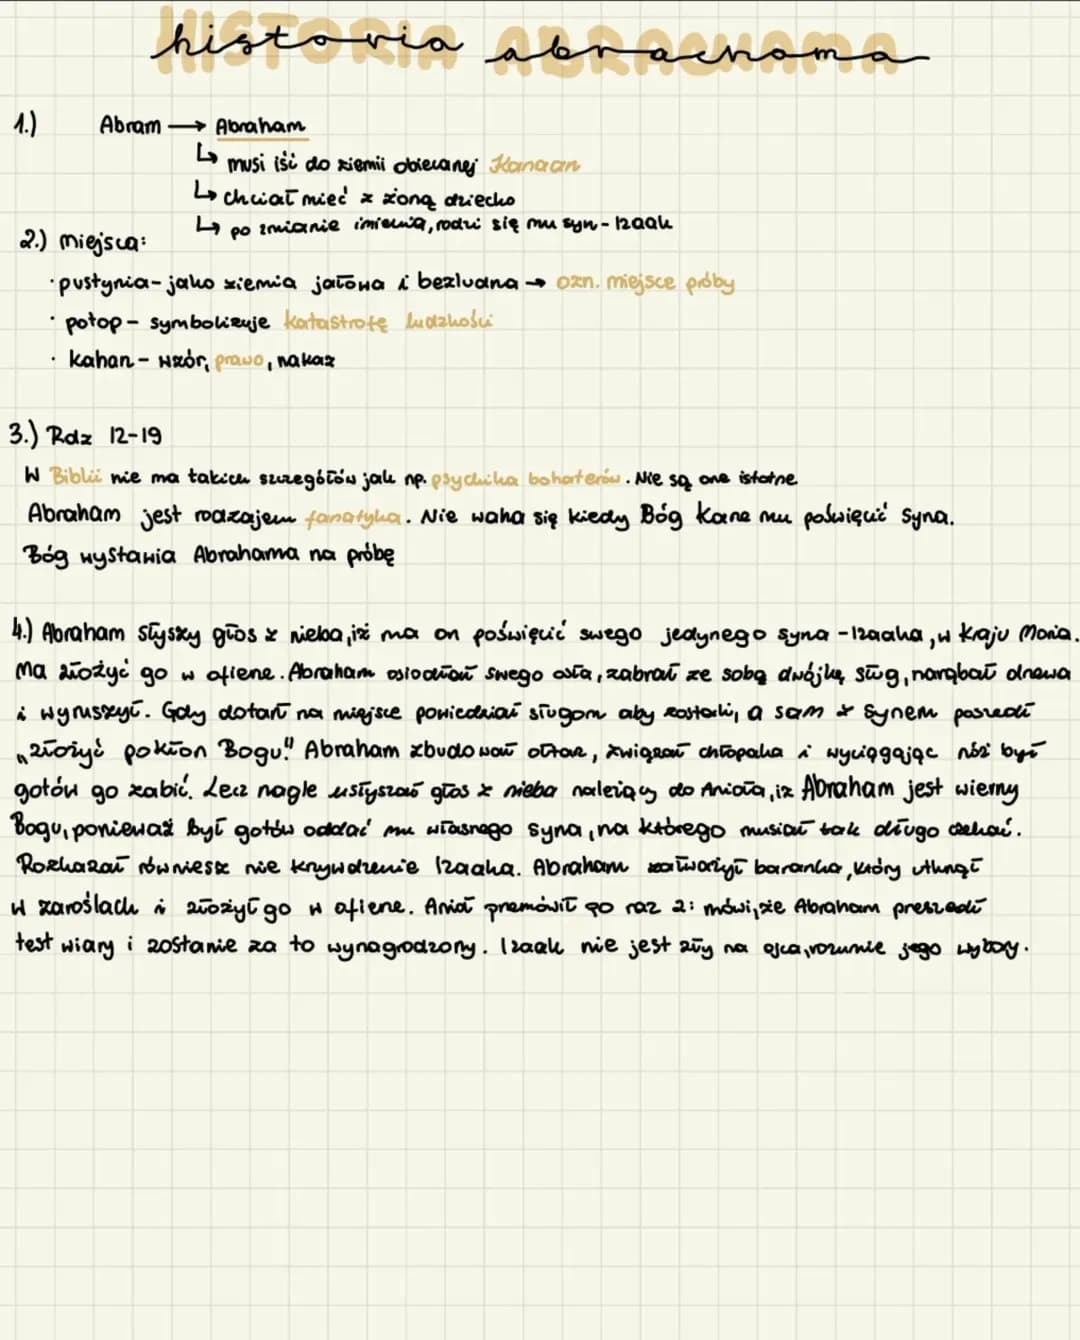 historia abrachama
1.) Abram → Abraham
↳ musi iść do ziemii obiecanej Kanaan
↳ chciał mieć z żoną dziecko
↳ po zmianie imienia, rodzi się mu syn - Izaak
2.) miejsca:
· pustynia - jako ziemia jałowa i bezludna → ozn. miejsce próby
· potop - symbolizuje katastrofę ludzkości
· kahan - wzór, prawo, nakaz
3.) Rdz 12-19
W Biblii nie ma takich szczegółów jak np. psychika bohaterów. Nie są one istotne
Abraham jest rodzajem fanatyka. Nie waha się kiedy Bóg karze mu poświęcić syna.
Bóg wystawia Abrahama na próbę
4.) Abraham słyszy głos z nieba, iż ma on poświęcić swego jedynego syna - Izaaka, w kraju Moria.
Ma złożyć go w ofierze. Abraham osiodłał swego osła, zabrał ze sobą dwójkę sług, narąbał drewa
i wyruszył. Gdy dotarł na miejsce powiedział sługom aby zostali, a sam z synem poszedł
„złożyć pokłon Bogu!" Abraham zbudował ołtarz, związał chłopaka i wyciągając nóż był
gotów go zabić. Lecz nagle usłyszał głos z nieba należący do Anioła, iż Abraham jest wierny
Bogu, ponieważ był gotów oddać mu własnego syna, na którego musiał tak długo czekać.
Rozkazał również nie krzywdzenie Izaaka. Abraham baranka, który utknął
w zaroślach i złożył go w ofierze. Anioł przemówił po raz 2: mówi, że Abraham przeszedł
test wiary i zostanie za to wynagrodzony. Izaak nie jest zły na ojca, rozumie jego wybory.